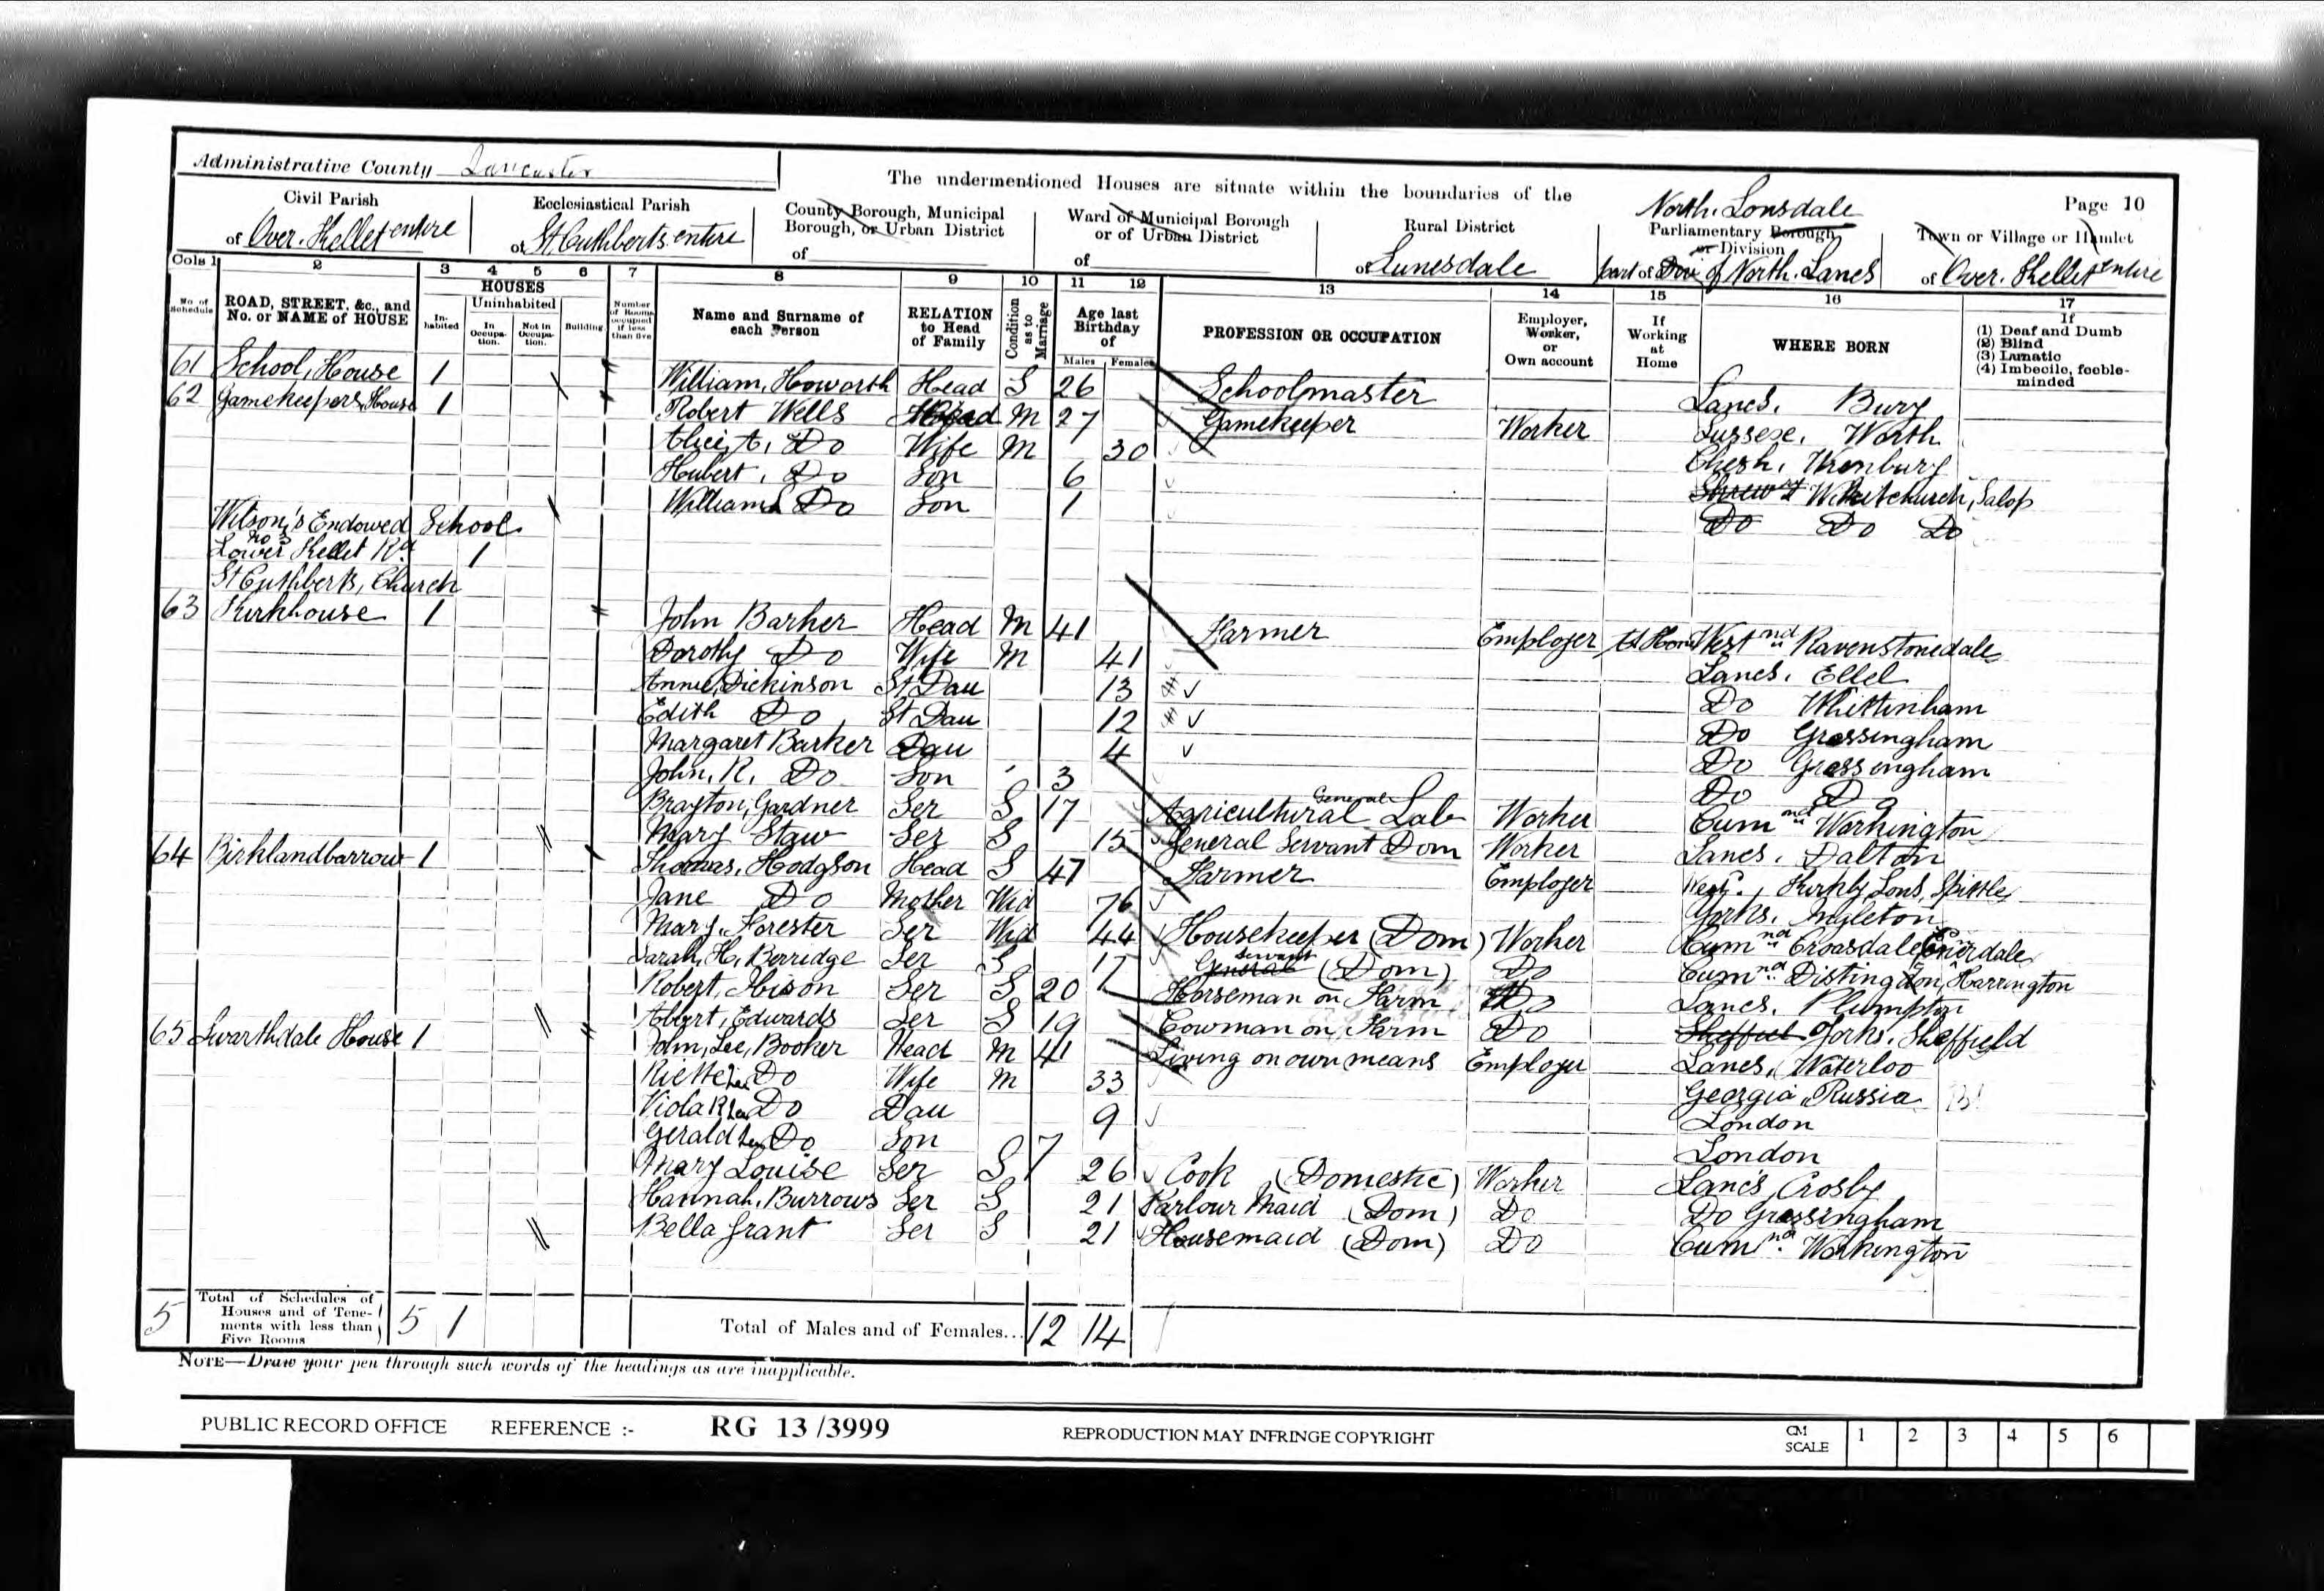 Administrative County Lancaster
The undermentioned Houses are situate within the boundaries of the
Page 10
Civil Parish of Over. Kellet entire
Ecclesiastical Parish of St Cuthberts. entire
County Borough, Municipal Borough, or Urban District of
Ward of Municipal Borough or of Urban District of
Rural District of Lunesdale
North. Lonsdale Parliamentary Borough or Division part of Div of North. Lancs
Town or Village or Hamlet of Over. Kellet entire
Cols 1 2 3 4 5 6 7 8 9 10 11 12 13 14 15 16 17
No. of Schedule
ROAD, STREET, &c., and No. or NAME of HOUSE
HOUSES
In-habited
Uninhabited
In Occupa-tion.
Not in Occupa-tion.
Building
Number of Rooms occupied if less than five
Name and Surname of each Person
RELATION to Head of Family
Condition as to Marriage
Age last Birthday of
Males Females
PROFESSION OR OCCUPATION
Employer, Worker, or Own account
If Working at Home
WHERE BORN
If
(1) Deaf and Dumb
(2) Blind
(3) Lunatic
(4) Imbecile, feeble-minded
61 School, House 1 William, Howorth Head S 26 Schoolmaster Lancs. Bury
62 Gamekeepers, House 1 Robert Wells Head M 27 Gamekeeper Worker Sussex. Worth
Alice, A, Do Wife M 30 Chesh. Wrenbury
Hubert, Do Son 6 Whitchurch, Salop
William Do Son 1 Do Do Do
Wilson's Endowed School
No 3
Lower Kellet Rd 1
St Cuthberts, Church
63 Kirkhouse 1 John Barker Head M 41 Farmer Employer At Home Westnd Ravenstonedale
Dorothy Do Wife M 41 Lancs. Ellel
Annie, Dickinson St Dau 13 Do Whittinham
Edith Do, St Dau 12 Do Gressingham
Margaret Barker Dau 4 Do Gressingham
John, R. Do Son 3 Do Do
Brayton, Gardner Ser S 17 Agricultural General Lab Worker Cumnd Workington
Mary Staw Ser S 15 General Servant Dom Worker Lancs. Dalton
64 Birklandbarrow 1 Thomas, Hodgson Head S 47 Farmer Employer Kirkby, Lons,
Jane Do Mother Wid 76 Yorks. Ingleton
Mary, Forester Ser Wid 44 Housekeeper (Dom) Worker Cumnd Croasdale
Sarah, H, Berridge Ser S 17 General Servant (Dom) Do Cumnd Distington, Harrington
Robert, Ibison Ser S 20 Horseman on Farm Do Lancs. Plumpton
Albert, Edwards Ser S 19 Cowman on Farm Do Yorks. Sheffield
65 Swarthdale House 1 John, Lee, Booker Head M 41 Living on own means Employer Lancs, Waterloo
Do Wife M 33 Georgia, Russia
Viola Do Dau 9 London
Gerald Lee Do Son S 7 London
Mary Louise Ser S 26 Cook (Domestic) Worker Lancs, Crosby
Hannah, Burrows Ser S 21 Parlour Maid (Dom) Do Do Gressingham
Bella Grant Ser S 21 Housemaid (Dom) Do Cumnd Workington
5 Total of Schedules of Houses and of Tene-ments with less than Five Rooms 5 1 Total of Males and of Females... 12 14
NOTE—Draw your pen through such words of the headings as are inapplicable.
PUBLIC RECORD OFFICE REFERENCE :- RG 13 /3999 REPRODUCTION MAY INFRINGE COPYRIGHT CM SCALE 1 2 3 4 5 6